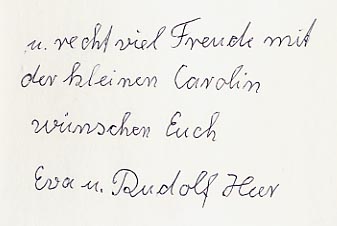 u. recht viel Freude mit
der kleinen Carolin
wünschen Euch
Eva u. Rudolf Hur